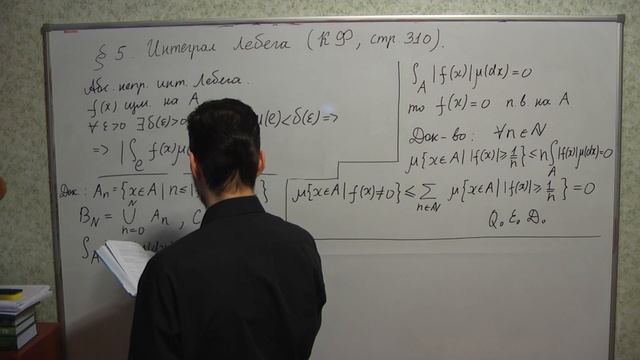 § 5. Интеграл Лебега (КФ, стр. 310).
Абс. непр. инт. Лебега.
f(x) инт. на A
∀ ε>0 ∃ δ(ε)>0 μ(e)<δ(ε) =>
=> |∫_e f(x)μ
Док.: Aₙ={x∈A | n≤|
B_N = ⋃_{n=0}^{N} Aₙ , C
∫_A
∫_A |f(x)|μ(dx)=0
то f(x)=0 п.в. на A
Док-во: ∀n∈ℕ
μ{x∈A | |f(x)|≥1/n}≤n∫_A|f(x)|μ(dx)=0
μ{x∈A | f(x)≠0}≤∑_{n∈ℕ} μ{x∈A | |f(x)|≥1/n}=0
Q. E. D.